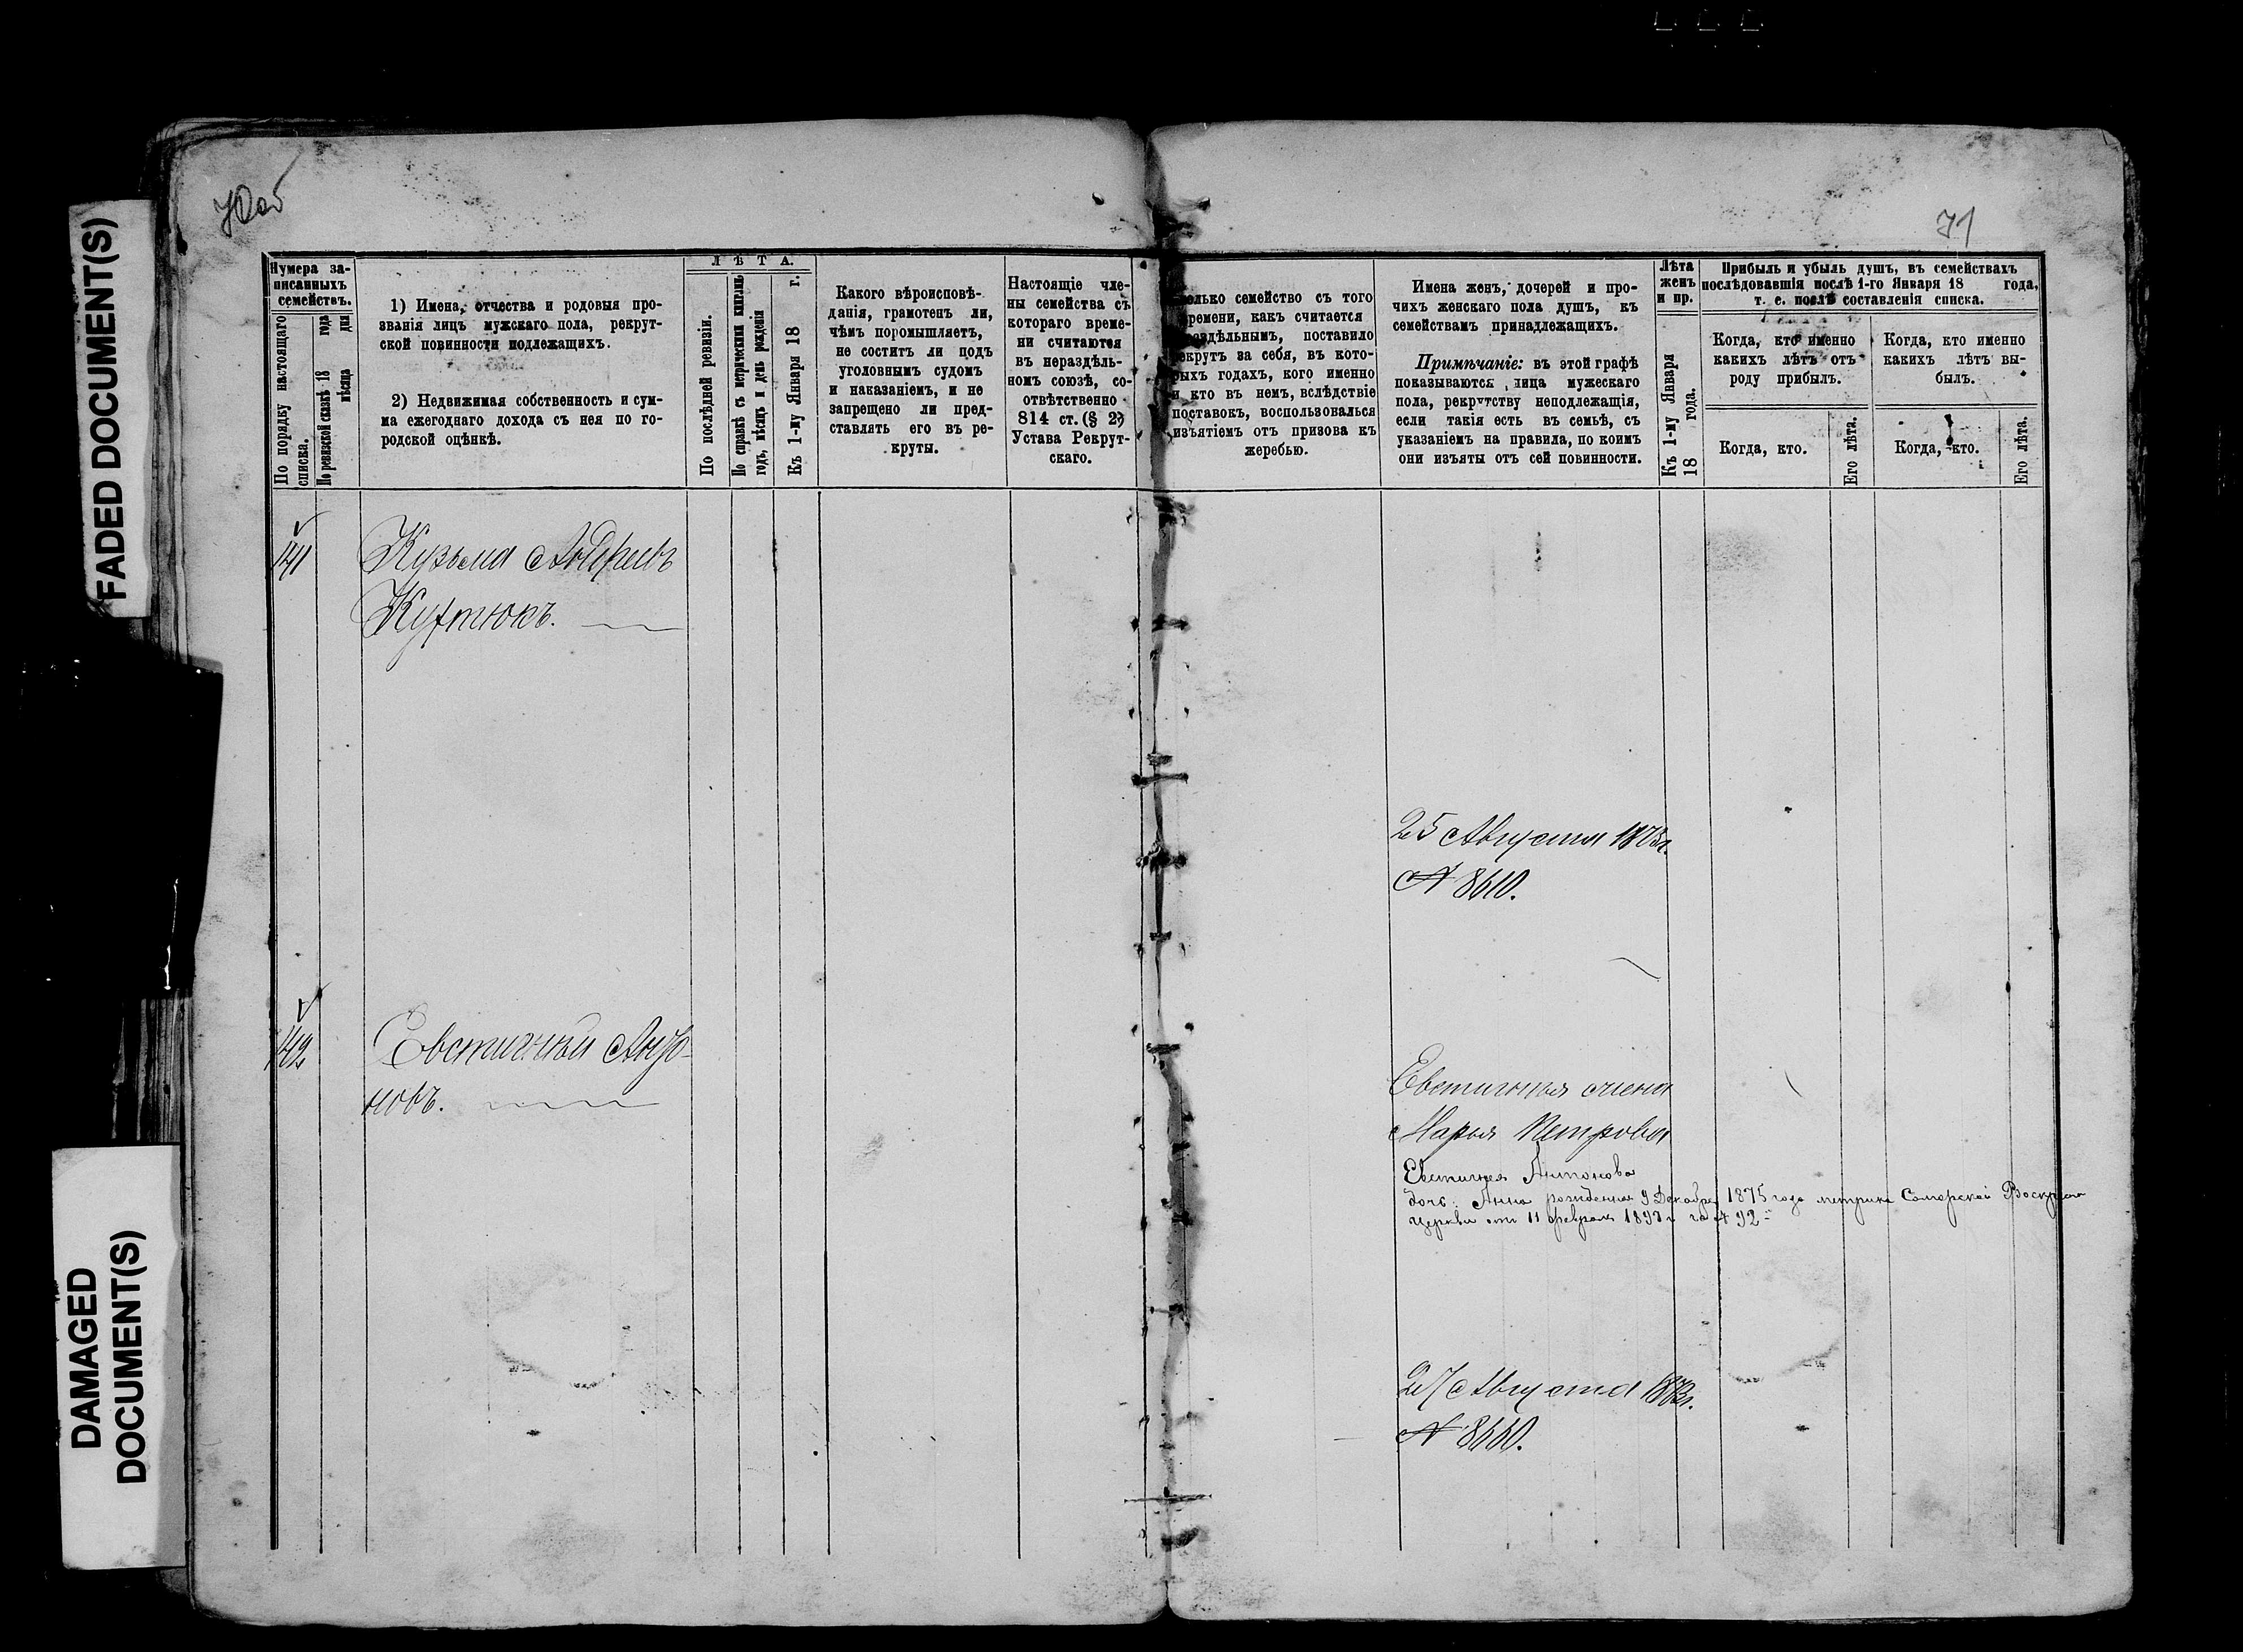 FADED DOCUMENT(S)
DAMAGED
DOCUMENT(S)
70об
71
Нумера за-
писанныхъ
семействъ.
По порядку настоящаго
списка.
По ревизской сказкѣ 18 года
мѣсяца дня
1) Имена, отчества и родовыя про-
званія лицъ мужскаго пола, рекрут-
ской повинности подлежащихъ.
2) Недвижимая собственность и сум-
ма ежегоднаго дохода съ нея по го-
родской оцѣнкѣ.
ЛѢТА.
По послѣдней ревизіи.
По справкѣ съ метрическими книгами
годъ, мѣсяцъ и день рожденія
Къ 1-му Января 18 г.
Какого вѣроисповѣ-
данія, грамотенъ ли,
чѣмъ поромышляетъ,
не соститъ ли подъ
уголовнымъ судомъ
и наказаніемъ, и не
запрещено ли пред-
ставлять его въ ре-
круты.
Настоящіе чле-
ны семейства съ
котораго време-
ни считаются
въ нераздѣль-
номъ союзѣ, со-
отвѣтственно
814 ст. (§ 2)
Устава Рекрут-
скаго.
олько семейство съ того
ремени, какъ считается
раздѣльнымъ, поставило
екрутъ за себя, въ кото-
рыхъ годахъ, кого именно
и кто въ немъ, вслѣдствіе
поставокъ, воспользовалься
изъятіемъ отъ призова къ
жеребью.
Имена женъ, дочерей и про-
чихъ женскаго пола душъ, къ
семействамъ принадлежащихъ.
Примѣчаніе: въ этой графѣ
показываются лица мужескаго
пола, рекрутству неподлежащія,
если такія есть въ семьѣ, съ
указаніемъ на правила, по коимъ
они изъяты отъ сей повинности.
Лѣта
женъ
и пр.
Къ 1-му Января
18 года.
Прибыль и убыль душъ, въ семействахъ
послѣдовавшія послѣ 1-го Января 18 года,
т. е. послѣ составленія списка.
Когда, кто именно
какихъ лѣтъ отъ
роду прибылъ.
Когда, кто именно
какихъ лѣтъ вы-
былъ.
Когда, кто.
Его лѣта.
Когда, кто.
Его лѣта.
141
Кузьма Андреевъ
Кухтюкъ.
25 Августа 1873г.
№ 8610.
142
Евстигнѣй Анто-
новъ.
Евстигнѣя жена
Марья Петрова
Евстигнея Антонова
дочь: Анна рожденная 9 Декабря 1875 года метрика Самарской
Церкви отъ 11 февраля 189 г за № 92
27 Августа 1873г.
№ 8660.